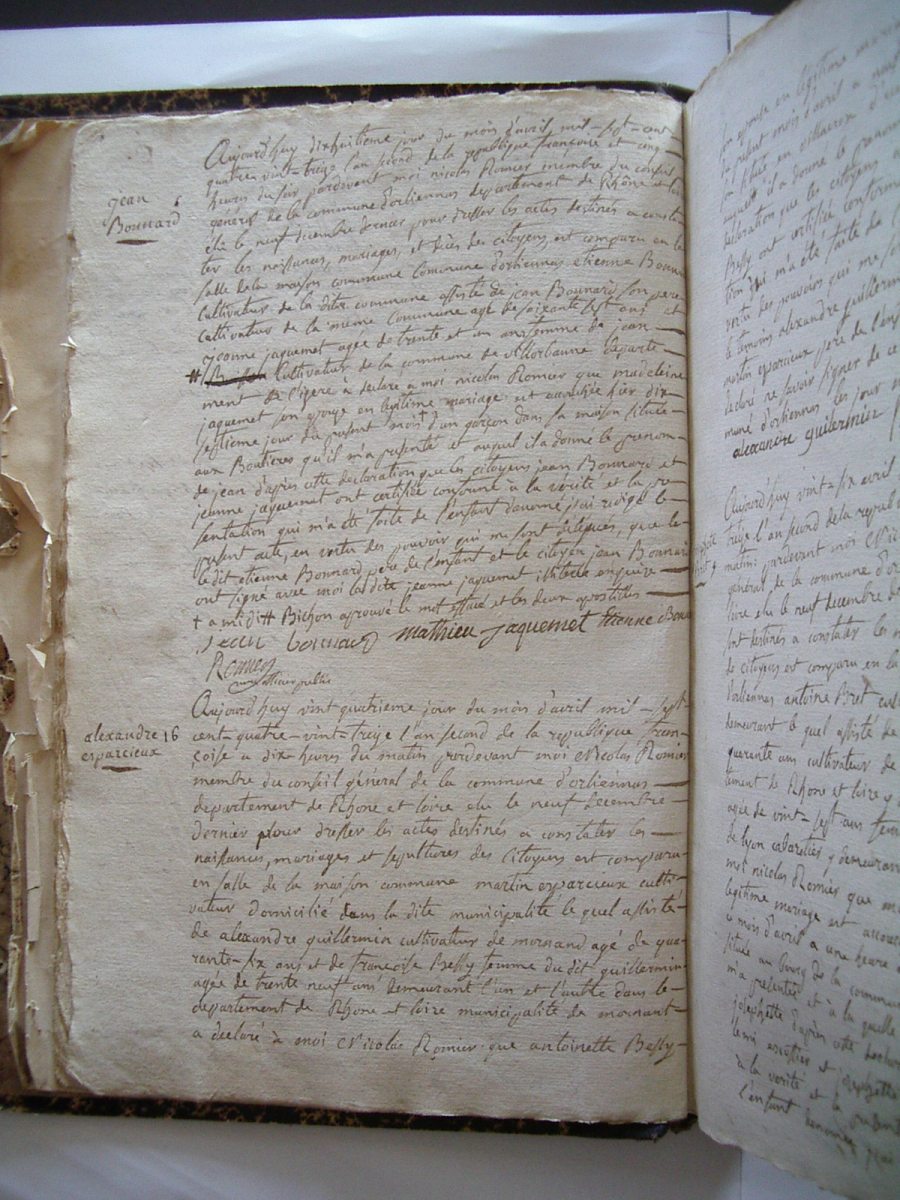 jean
Bonnard
Aujourd'huy dixhuitieme jour du mois d'avril mil-sept-cent
quatre vint-treize l'an second de la republique françoise et cinq
heures du soir pardevant moi nicolas Romier membre du conseil
général de la commune d'orliennas departement de Rhône et loi
élu le neuf decembre dernier pour dresser les actes destinés a consta
ter les naissances, mariages, et décès des citoyens est comparu en la
salle de la maison commune Commune d'orliennas etienne Bonnar
Cultivateur de la dite commune assisté de jean Bonnard son pere
cultivateur de la même Commune agé de soixante sept ans et
jeanne jaquemet agée de trente et un ans femme de jean
# cultivateur de la commune de villorbanne departe-
ment de l'isere à declaré a moi nicolas Romier que madeleine
jaquemet son epouse en legitime mariage est accouchée hier dix
septieme jour du present mois † d'un garçon dans sa maison située
aux Boutieres qu'il m'a presenté et auquel il a donné le prenom
de jean d'après cette declaration que les citoyens jean Bonnard et
jeanne jaquemet ont certifiée conforme à la verité et la pre
sentation qui m'a été faite de l'enfant denommé j'ai redigé le
present acte, en vertu des pouvoir qui me sont delegués, que le
le dit etienne Bonnard pere de l'enfant et le citoyen jean Bonnard
ont signé avec moi la dite jeanne jaquemet illiteré enquise
† a midi # Bichon aprouvé le mot effacé et les deux apostilles
jean bonnard mathieu jaquemet Etienne Bonna
Romier
officier public
alexandre 16
esparcieux
Aujourd'huy vint quatrieme jour du mois d'avril mil-sept
cent-quatre-vint-treize l'an second de la republique fran-
çoise a dix heures du matin pardevant moi Nicolas Romier
membre du conseil général de la commune d'orliennas
departement de Rhone et loire elu le neuf decembre
dernier pour dresser les actes destinés a constater les
naissances, mariages et sepultures des Citoyens est comparu
en salle de la maison commune martin esparcieux culti-
vateur domicilié dans la dite municipalité le quel assisté
de alexandre guillermin cultivateur de mornand agé de qua
rante-six ans et de françoise Bessy femme du dit guillermin
agée de trente neuf ans demeurant l'un et l'autre dans le
departement de Rhone-et loire municipalité de mornant
a declaré à moi Nicolas Romier que antoinette Bessy
son epouse en legitime maria
du present mois d'avril a
auquel il a donné le prenom
declaration que les citoyens a
Bessy ont certifiée conforme
tion qui m'a été faite de l
vertu des pouvoirs qui me s
le temoins alexandre guillermin
martin esparcieux pere de l'enf
declaré ne savoir signer de ce
mune d'orliennas les jour
alexandre guilermin
Aujourd'huy vint-six avril
treize l'an second de la republ
matin pardevant moi Nicol
général de la commune d'or
loire elu le neuf decembre de
sont destinés a constater les n
de citoyens est comparu en la
d'orliennas antoine Bret cult
demeurant le quel assisté de
quarente ans cultivateur de
tement de Rhone et loire y
agée de vint-sept ans fem
de lyon cabaretier y demeurant
moi nicolas Romier que m
legitime mariage est accouc
u mois d'avril a une heure
située au bourg de la commun
m'a presentée et à la quelle
josephette d'après cette declar
à la verité et la presentat
l'enfant denommé j'ai